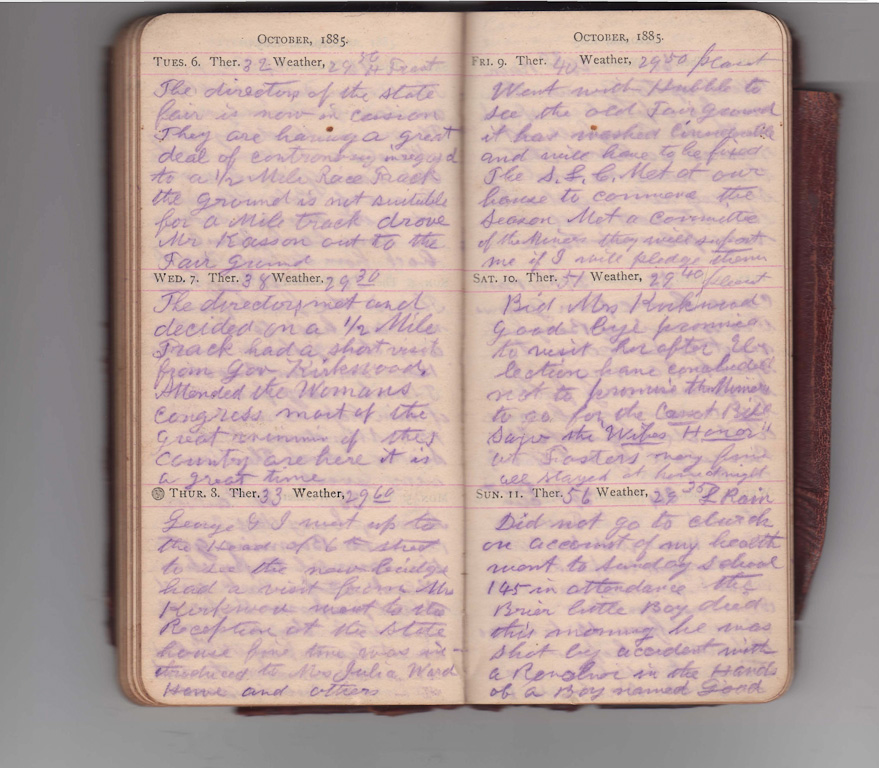 OCTOBER, 1885.
TUES. 6. Ther. 32 Weather, 29 Frost
The directors of the state
fair is now in cession
They are having a great
deal of controversy in regard
to a 1/2 Mile Race Track
the ground is not suitible
for a Mile track drove
Mr Kasson out to the
Fair ground
WED. 7. Ther. 38 Weather, 29 30
The directors met and
decided on a 1/2 Mile
Track had a short visit
from Gov Kirkwood,
Attended the Womans
Congress most of the
great women of the
country are here it is
a great time
THUR. 8. Ther. 33 Weather, 29 60
George & I went up to
the Head of 6th street
to see the new bridge
had a visit from Mr
Kirkwood went to the
Reception at the State
house fine time was in-
troduced to Mrs Julia Ward
Howe and others
OCTOBER, 1885.
FRI. 9. Ther. 40 Weather, 29 50 pleast
Went with Hubble to
see the old Fair ground
it has washed
and will have to be fixed
The S. L. C. Met at our
house to commence the
Season Met a Committee
of the Miners they will suport
me if I will pledge them
SAT. 10. Ther. 51 Weather, 29 40 pleast
Bid Mrs Kirkwood
good bye promise
to visit her after El-
lection have concluded
not to promise the Miners
to go for the Bill
Saw the "Wifes Honor"
at Fosters very fine
all stayed at home at night
SUN. 11. Ther. 56 Weather, 29 35 L Rain
Did not go to church
on account of my health
went to Sunday School
145 in attendance the
Brier little Boy died
this morning he was
shot by accident with
a Revolver in the Hands
of a Boy named Good